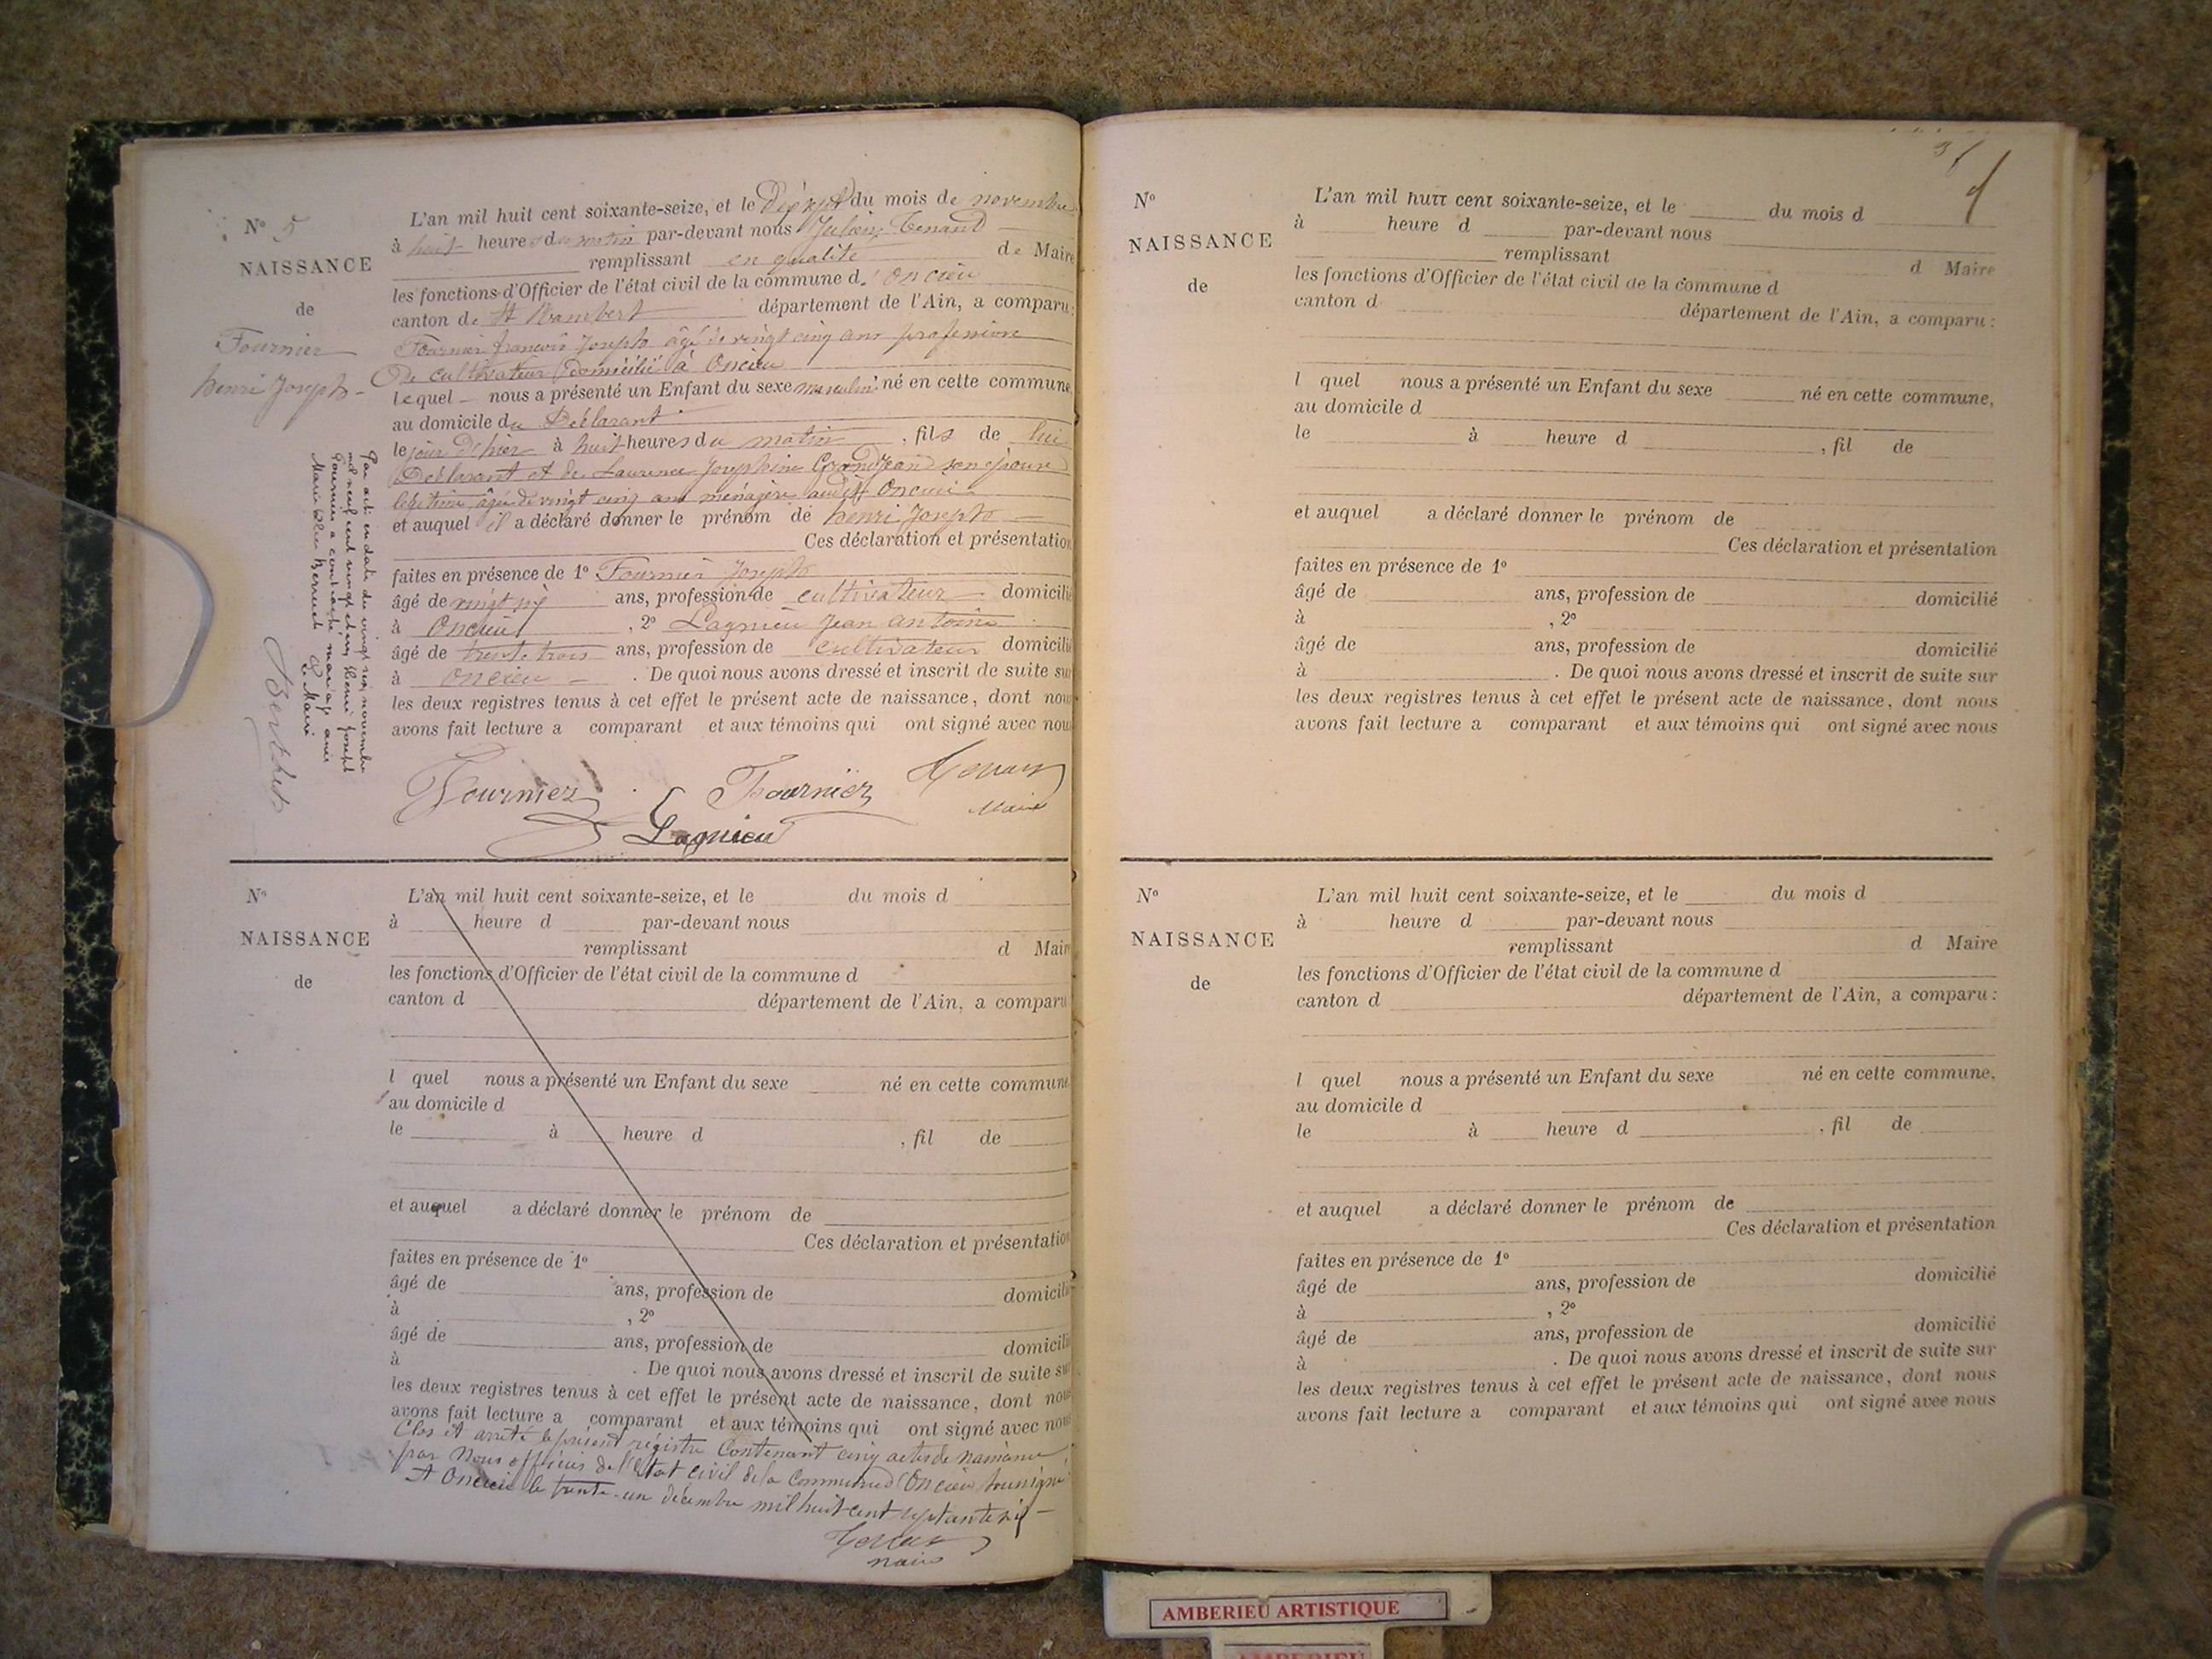 N° 5
NAISSANCE
de
Fournier
henri Joseph
L'an mil huit cent soixante-seize, et le Dix sept du mois de novembre
à huit heures du matin par-devant nous Julien Tenand
remplissant en qualité de Maire
les fonctions d'Officier de l'état civil de la commune d'Oncieu
canton de St Rambert département de l'Ain, a comparu :
Fournier françois Joseph âgé de vingt cinq ans profession
De cultivateur Domicilié à Oncieu
lequel nous a présenté un Enfant du sexe masculin né en cette commune,
au domicile du Déclarant
le jour d'hier à huit heures du matin , fils de lui
Déclarant et de Laurence Josephine Grandjean son épouse
légitime âgée de vingt cinq ans ménagère audit Oncieu
et auquel il a déclaré donner le prénom de henri Joseph
Ces déclaration et présentation
faites en présence de 1° Fournier Joseph
âgé de vingt six ans, profession de cultivateur domicilié
à Oncieu , 2° Lagnieu Jean antoine
âgé de trente trois ans, profession de cultivateur domicilié
à Oncieu . De quoi nous avons dressé et inscrit de suite sur
les deux registres tenus à cet effet le présent acte de naissance, dont nous
avons fait lecture a comparant et aux témoins qui ont signé avec nous
Par acte en date du vingt six novembre
mil neuf cent vingt et un Henri Joseph
Fournier a contracté mariage avec
Marie
Le Maire
Fournier Fournier Tenand
Maire
Lagnieu
N°
NAISSANCE
de
L'an mil huit cent soixante-seize, et le du mois d
à heure d par-devant nous
remplissant d Maire
les fonctions d'Officier de l'état civil de la commune d
canton d département de l'Ain, a comparu
l quel nous a présenté un Enfant du sexe né en cette commune
au domicile d
le à heure d , fil de
et auquel a déclaré donner le prénom de
Ces déclaration et présentation
faites en présence de 1°
âgé de ans, profession de domicilié
à , 2°
âgé de ans, profession de domicilié
à . De quoi nous avons dressé et inscrit de suite sur
les deux registres tenus à cet effet le présent acte de naissance, dont nous
avons fait lecture a comparant et aux témoins qui ont signé avec nous
Clos et arrêté le présent régistre Contenant cinq actes de naissance
par Nous officier de l'Etat civil de la Commune d'Oncieu soussigné
A Oncieu le trente-un décembre mil huit cent septante six
Tenand
maire
N°
NAISSANCE
de
L'an mil huit cent soixante-seize, et le du mois d
à heure d par-devant nous
remplissant d Maire
les fonctions d'Officier de l'état civil de la commune d
canton d département de l'Ain, a comparu :
l quel nous a présenté un Enfant du sexe né en cette commune,
au domicile d
le à heure d , fil de
et auquel a déclaré donner le prénom de
Ces déclaration et présentation
faites en présence de 1°
âgé de ans, profession de domicilié
à , 2°
âgé de ans, profession de domicilié
à . De quoi nous avons dressé et inscrit de suite sur
les deux registres tenus à cet effet le présent acte de naissance, dont nous
avons fait lecture a comparant et aux témoins qui ont signé avec nous
N°
NAISSANCE
de
L'an mil huit cent soixante-seize, et le du mois d
à heure d par-devant nous
remplissant d Maire
les fonctions d'Officier de l'état civil de la commune d
canton d département de l'Ain, a comparu :
l quel nous a présenté un Enfant du sexe né en cette commune,
au domicile d
le à heure d , fil de
et auquel a déclaré donner le prénom de
Ces déclaration et présentation
faites en présence de 1°
âgé de ans, profession de domicilié
à , 2°
âgé de ans, profession de domicilié
à . De quoi nous avons dressé et inscrit de suite sur
les deux registres tenus à cet effet le présent acte de naissance, dont nous
avons fait lecture a comparant et aux témoins qui ont signé avec nous
AMBERIEU ARTISTIQUE
AMBERIEU